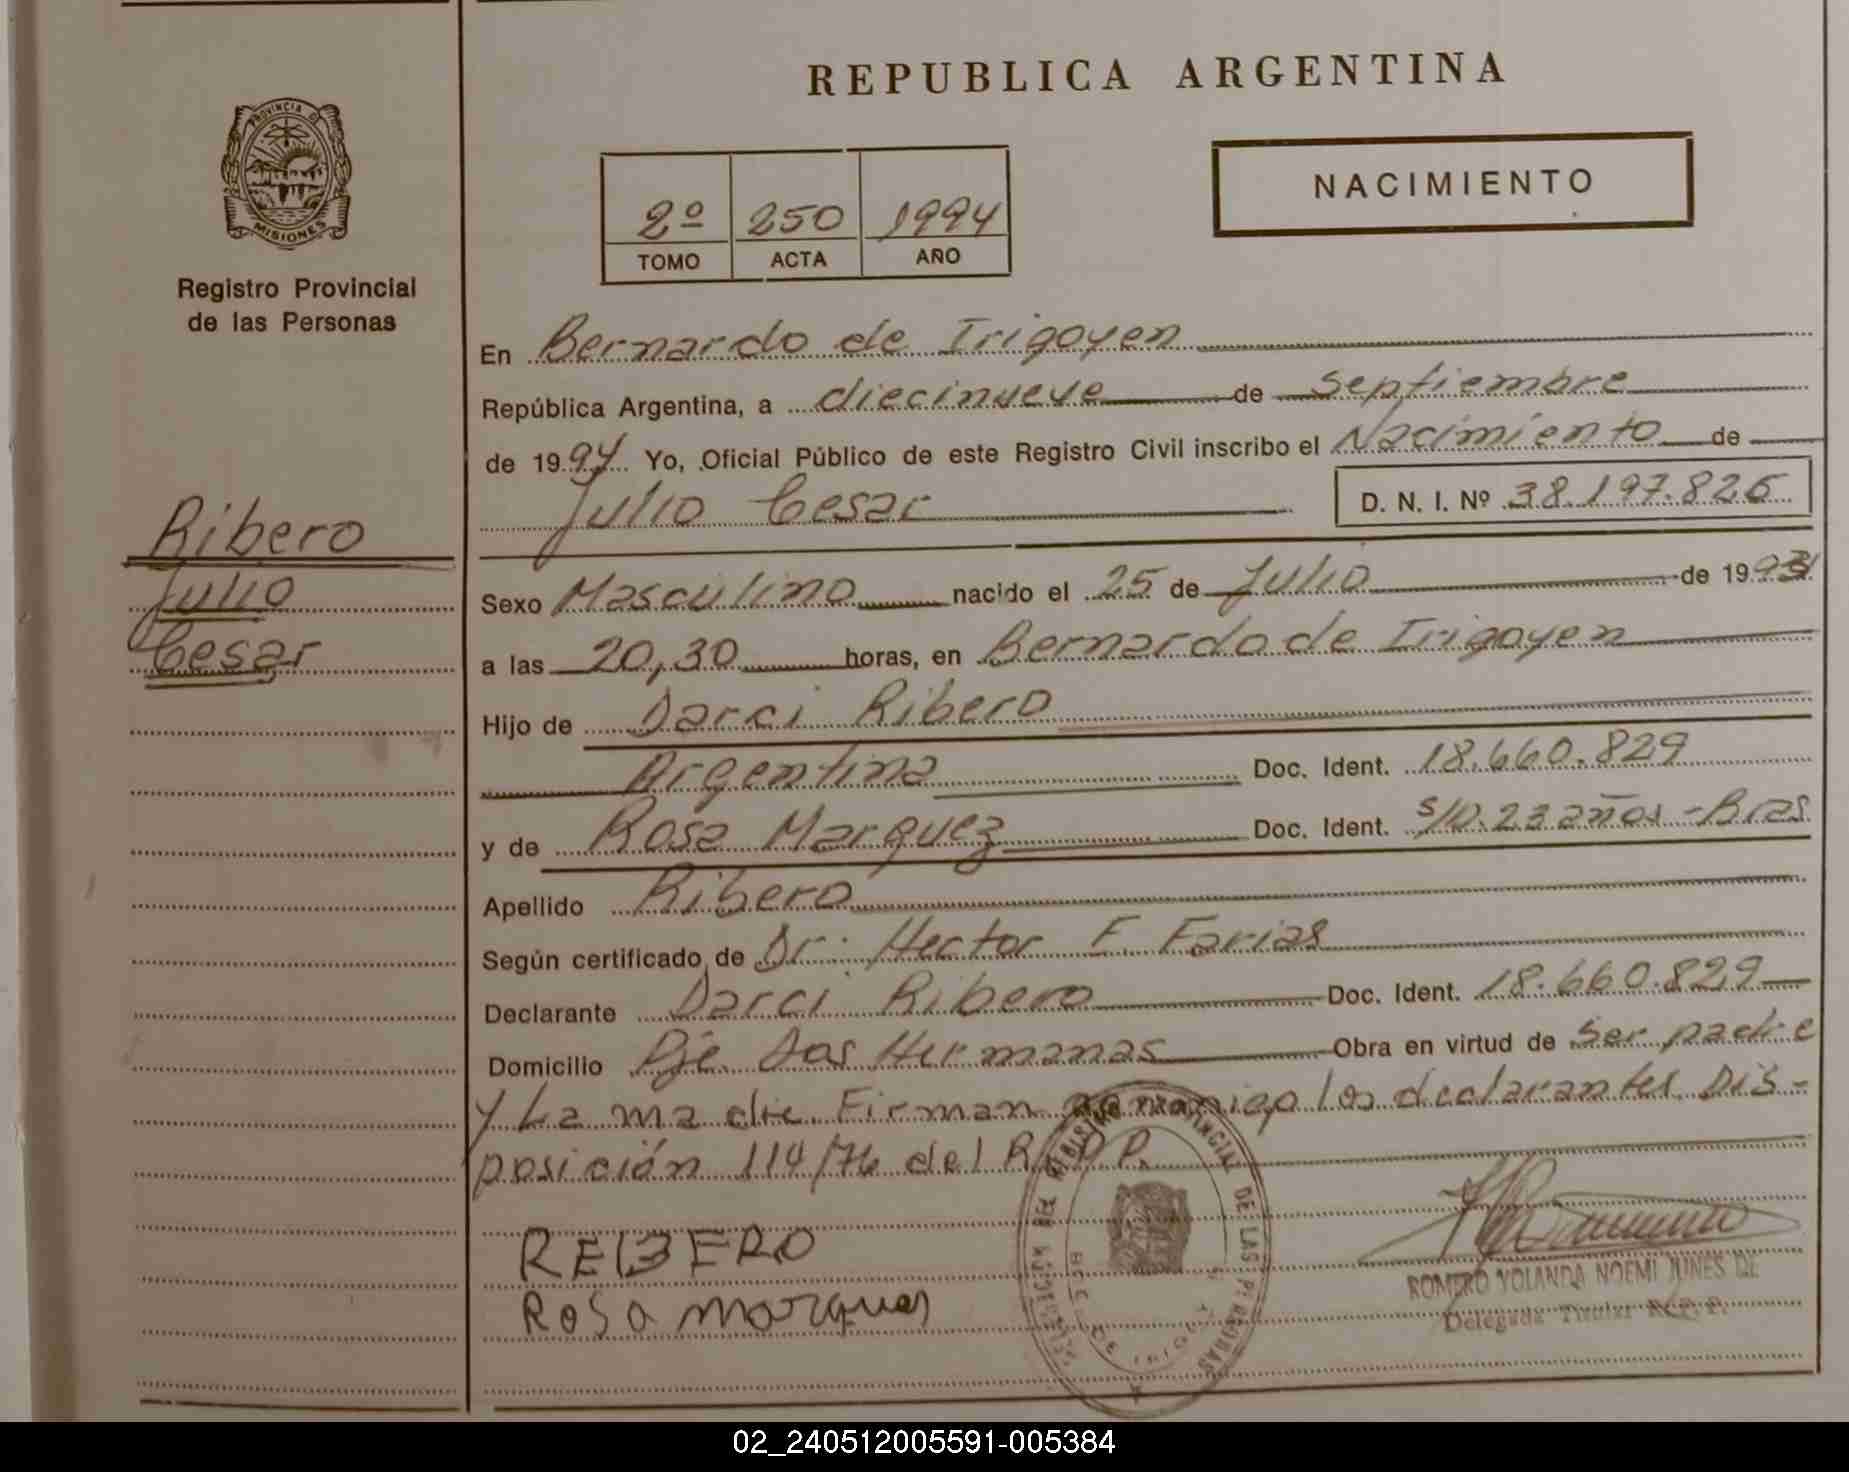 REPUBLICA ARGENTINA
PROVINCIA DE
MISIONES
Registro Provincial
de las Personas
2º 250 1994
TOMO ACTA AÑO
NACIMIENTO
En Bernardo de Irigoyen
República Argentina, a diecinueve de Septiembre
de 1994 Yo, Oficial Público de este Registro Civil inscribo el Nacimiento de
Julio Cesar D. N. I. Nº 38.197.826
Ribero
Julio
Cesar
Sexo Masculino nacido el 25 de Julio de 199
a las 20,30 horas, en Bernardo de Irigoyen
Hijo de Darci Ribero
Argentina Doc. Ident. 18.660.829
y de Rosa Marquez Doc. Ident. S/D. 23 años - Bras
Apellido Ribero
Según certificado de Dr. Hector F. Farias
Declarante Darci Ribero Doc. Ident. 18.660.829
Domicilio Pje Dos Hermanas Obra en virtud de ser padre
y La madre. Firman los declarantes. Dis-
posición 114/76 del R. P. P.
REIBERO
Rosa marques
REGISTRO PROVINCIAL DE LAS PERSONAS
ROMERO YOLANDA NOEMI JUNES DE
Delegada Titular R. P. P.
02_240512005591-005384